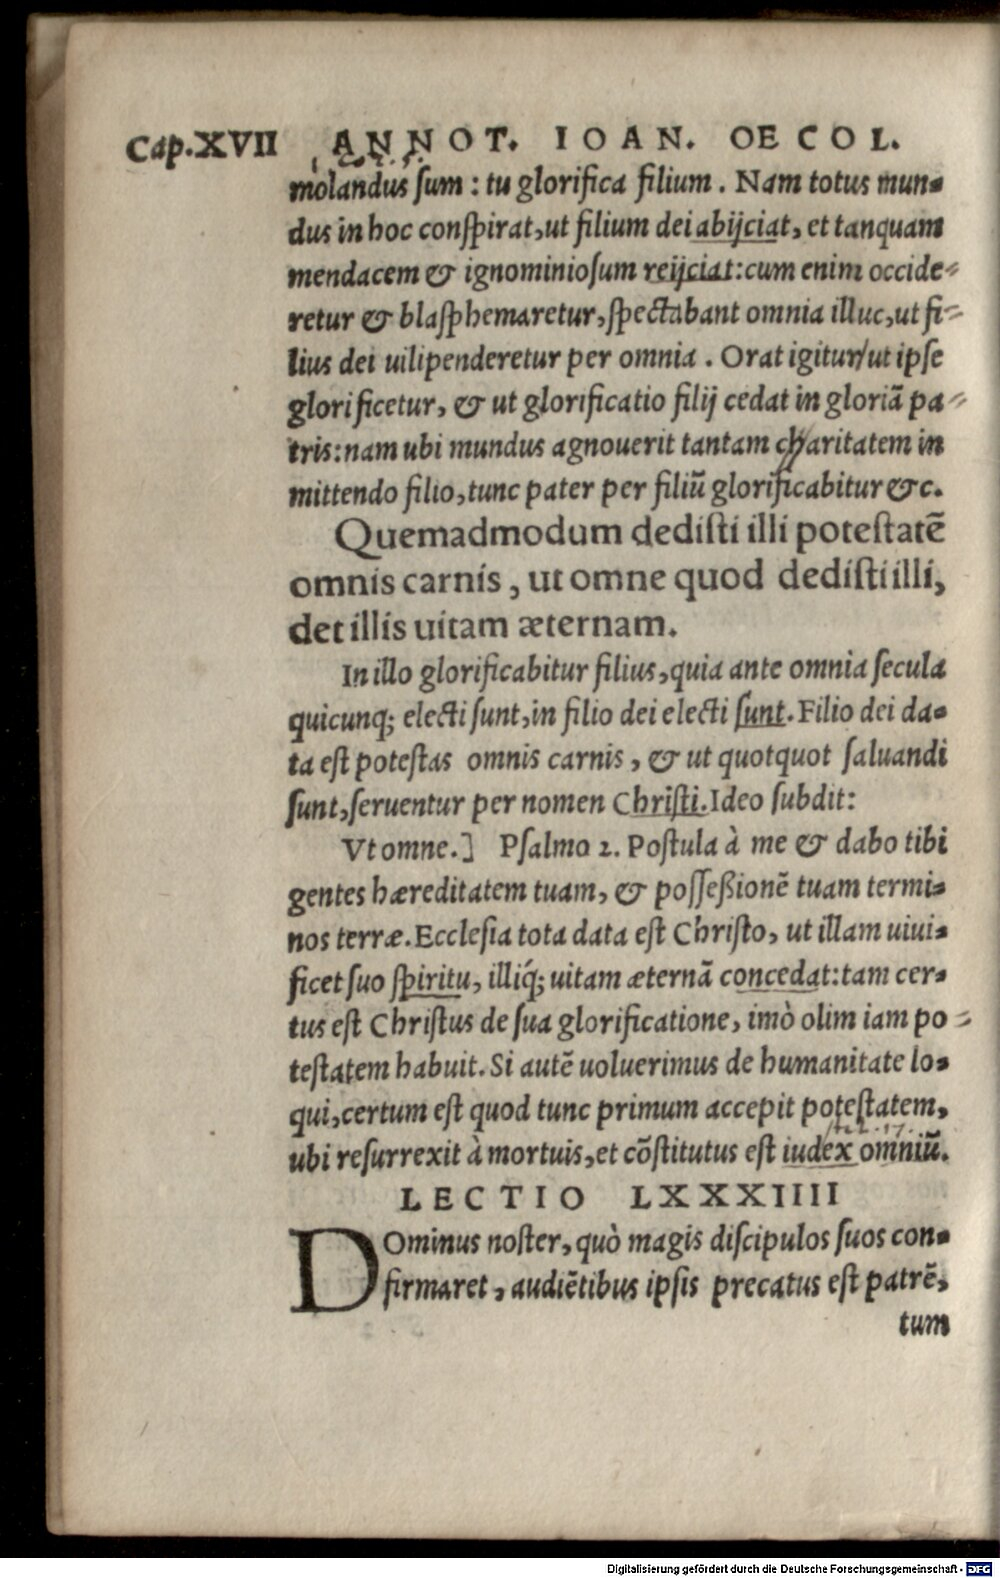 Cap.XVII ANNOT. IOAN. OECOL.
molandus ſum : tu glorifica filium . Nam totus mun⸗
dus in hoc conſpirat,ut filium dei abijciat, et tanquam
mendacem & ignominioſum reijciat:cum enim occide⸗
retur & blaſphemaretur,ſpectabant omnia illuc,ut fi⸗
lius dei uilipenderetur per omnia . Orat igitur/ut ipſe
glorificetur, & ut glorificatio filij cedat in gloriã pa⸗
tris:nam ubi mundus agnouerit tantam charitatem in
mittendo filio,tunc pater per filiũ glorificabitur &c.
Quemadmodum dediſti illi poteſtatẽ
omnis carnis , ut omne quod dediſti illi,
det illis uitam æternam.
In illo glorificabitur filius,quia ante omnia ſecula
quicunq; electi ſunt,in filio dei electi ſunt. Filio dei da⸗
ta eſt poteſtas omnis carnis , & ut quotquot ſaluandi
ſunt,ſeruentur per nomen Chriſti.Ideo ſubdit:
Vt omne.] Pſalmo 2. Poſtula à me & dabo tibi
gentes hæreditatem tuam, & poſſeßionẽ tuam termi⸗
nos terræ.Eccleſia tota data eſt Chriſto, ut illam uiui⸗
ficet ſuo ſpiritu, illiq́; uitam æternã concedat:tam cer⸗
tus eſt Chriſtus de ſua glorificatione, imò olim iam po⸗
teſtatem habuit. Si autẽ uoluerimus de humanitate lo⸗
qui,certum eſt quod tunc primum accepit poteſtatem,
ubi reſurrexit à mortuis,et cõſtitutus eſt iudex omniũ.
LECTIO LXXXIIII
DOminus noſter, quò magis diſcipulos ſuos con⸗
firmaret , audiẽtibus ipſis precatus eſt patrẽ,
tum
Digitalisierung gefördert durch die Deutsche Forschungsgemeinschaft - DFG